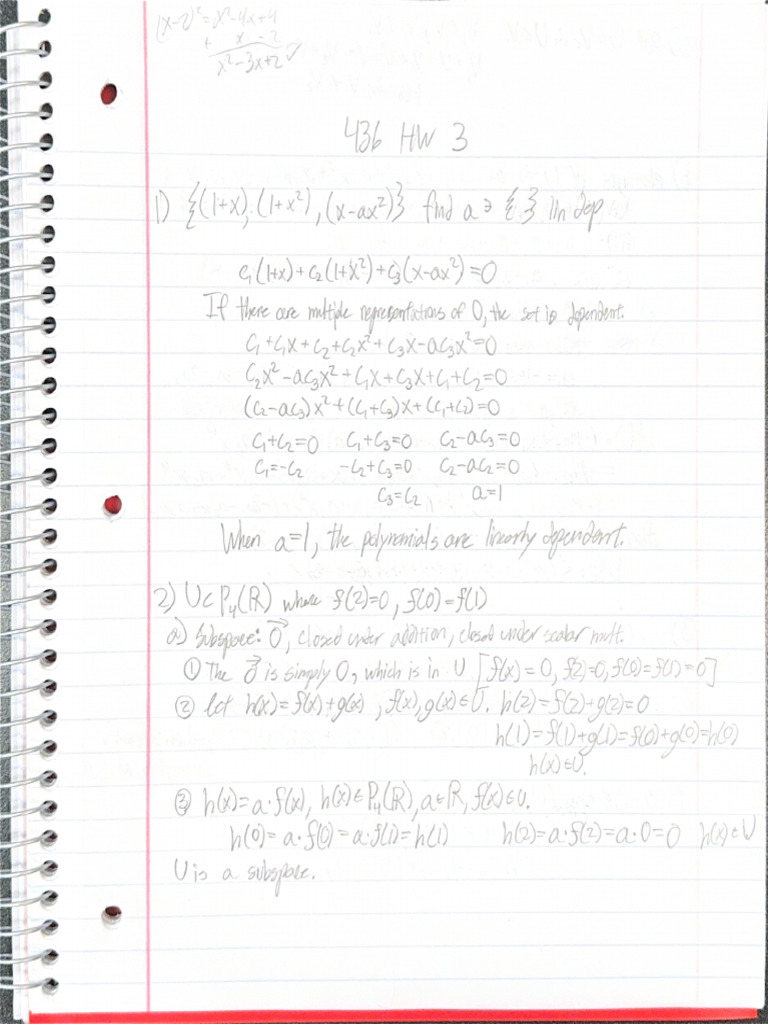 (x-2)² = x²-4x+4
+ x -2
x²-3x+2 ✓
436 HW 3
1) {(1+x), (1+x²), (x-ax²)} find a ∋ {} lin dep.
c₁(1+x)+c₂(1+x²)+c₃(x-ax²)=0
If there are multiple representations of 0, the set is dependent.
c₁+c₁x+c₂+c₂x²+c₃x-ac₃x²=0
c₂x²-ac₃x²+c₁x+c₃x+c₁+c₂=0
(c₂-ac₃)x²+(c₁+c₃)x+(c₁+c₂)=0
c₁+c₂=0 c₁+c₃=0 c₂-ac₃=0
c₁=-c₂ -c₂+c₃=0 c₂-ac₂=0
c₃=c₂ a=1
When a=1, the polynomials are linearly dependent.
2) U⊂P₄(ℝ) where f(2)=0, f(0)=f(1)
a) Subspace: 0⃗, closed under addition, closed under scalar mult.
① The 0⃗ is simply 0, which is in U [f(x)=0, f(2)=0, f(0)=f(1)=0]
② let h(x)=f(x)+g(x), f(x),g(x)∈U. h(2)=f(2)+g(2)=0
h(1)=f(1)+g(1)=f(0)+g(0)=h(0)
h(x)∈U.
③ h(x)=a·f(x), h(x)∈P₄(ℝ), a∈ℝ, f(x)∈U.
h(0)=a·f(0)=a·f(1)=h(1) h(2)=a·f(2)=a·0=0 h(x)∈U
U is a subspace.